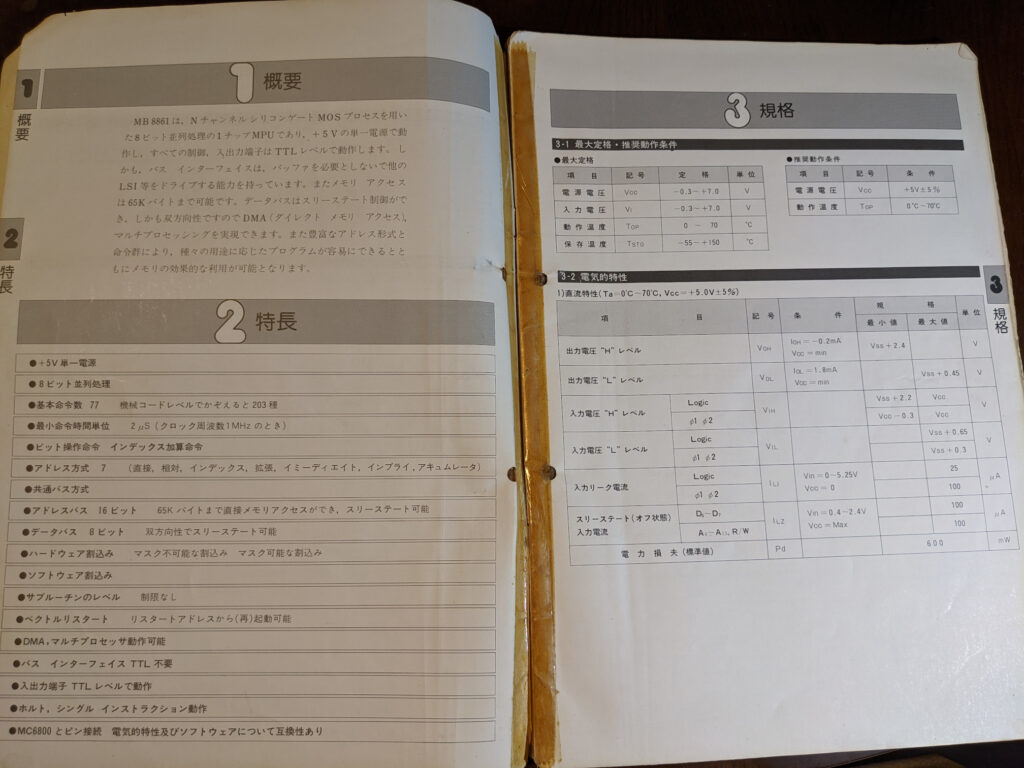 1
概要
1 概要
MB 8861 は、N チャンネル シリコンゲート MOS プロセスを用い
た 8 ビット並列処理の 1 チップ MPU であり、+5 V の単一電源で動
作し、すべての制御、入出力端子は TTL レベルで動作します。し
かも、バス インターフェイスは、バッファを必要としないで他の
LSI 等をドライブする能力を持っています。またメモリ アクセス
は 65K バイトまで可能です。データバスはスリーステート制御がで
き、しかも双方向性ですので DMA (ダイレクト メモリ アクセス),
マルチプロセッシングを実現できます。また豊富なアドレス形式と
命令群により、種々の用途に応じたプログラムが容易にできるとと
もにメモリの効果的な利用が可能となります。
2
特長
2 特長
●+5V 単一電源
●8 ビット並列処理
●基本命令数 77 機械コードレベルでかぞえると 203 種
●最小命令時間単位 2μS (クロック周波数 1 MHz のとき)
●ビット操作命令 インデックス加算命令
●アドレス方式 7 (直接, 相対, インデックス, 拡張, イミーディエイト, インプライ, アキュムレータ)
●共通バス方式
●アドレスバス 16 ビット 65K バイトまで直接メモリアクセスができ, スリーステート可能
●データバス 8 ビット 双方向性でスリーステート可能
●ハードウェア割込み マスク不可能な割込み マスク可能な割込み
●ソフトウェア割込み
●サブルーチンのレベル 制限なし
●ベクトルリスタート リスタートアドレスから(再)起動可能
●DMA, マルチプロセッサ動作可能
●バス インターフェイス TTL 不要
●入出力端子 TTL レベルで動作
●ホルト, シングル インストラクション動作
●MC6800 とピン接続 電気的特性及びソフトウェアについて互換性あり
3 規格
3-1 最大定格・推奨動作条件
●最大定格
項 目 記 号 定 格 単 位
電 源 電 圧 Vcc −0.3〜+7.0 V
入 力 電 圧 VI −0.3〜+7.0 V
動 作 温 度 TOP 0 〜 70 ℃
保 存 温 度 TSTG −55〜+150 ℃
●推奨動作条件
項 目 記 号 条 件
電 源 電 圧 Vcc +5V±5%
動 作 温 度 TOP 0℃〜70℃
3-2 電気的特性
1)直流特性(Ta=0℃〜70℃, Vcc=+5.0V±5%)
項 目 記 号 条 件 規 格 単 位
最 小 値 最 大 値
出力電圧 "H" レベル VOH IOH=−0.2mA Vcc=min Vss+2.4 V
出力電圧 "L" レベル VOL IOL=1.8mA Vcc=min Vss+0.45 V
入力電圧 "H" レベル Logic VIH Vss+2.2 Vcc V
φ1 φ2 Vcc−0.3 Vcc
入力電圧 "L" レベル Logic VIL Vss+0.65 V
φ1 φ2 Vss+0.3
入力リーク電流 Logic ILI Vin=0〜5.25V 25 μA
φ1 φ2 Vcc=0 100
スリーステート(オフ状態) D0〜D7 ILZ Vin=0.4〜2.4V 100 μA
入力電流 A0〜A15, R/W Vcc=Max 100
電 力 損 失 (標準値) Pd 600 mW
3
規格